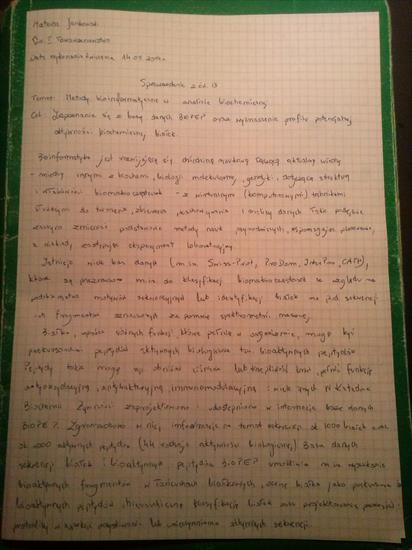 Mateusz Jankowski
Gr. I Towaroznawstwo
Data wykonania ćwiczenia 14.05.
Sprawozdanie z ćw. 13
Temat: Metody bioinformatyczne w analizie biochemicznej
Cel: Zapoznanie się z bazą danych BIOPEP oraz wyznaczenie profilu potencjalnej
aktywności biologicznej białek.
Bioinformatyka jest rozwijającą się dziedziną naukową łączącą aktualną wiedzę
- między innymi z biochemii, biologii molekularnej, genetyki - dotyczącą struktury
i właściwości biomakrocząsteczek - z wirtualnymi (komputerowymi) technikami
służącymi do tworzenia, zbierania, przechowywania i analizy danych. Takie podejście
metody nauk przyrodniczych,
a niekiedy zastępuje eksperyment laboratoryjny.
Istnieje wiele baz danych (m.in. Swiss-Prot, ProDom, InterPro, CATH),
które są przeznaczone m.in. do klasyfikacji biomakrocząsteczek ze względu na
podobieństwo motywów sekwencyjnych lub identyfikacji białek na pod. sekwencji
ich fragmentów oznaczanych za pomocą spektrometrii masowej.
Białka, oprócz różnych funkcji, które pełnią w organizmie, mogą być
prekursorami peptydów aktywnych biologicznie tzw. bioaktywnych peptydów.
Peptydy takie mogą np. obniżać ciśnienie krwi, pełnić funkcję
antyoksydacyjną, antybakteryjną, immunomodulacyjną i wiele innych. W Katedrze
Biochemii Żywności zaprojektowano i udostępniono w internecie bazę danych
BIOPEP. Zgromadzono w niej informacje na temat sekwencji ok 1000 białek oraz
ok 2000 aktywnych peptydów (44 rodzaje aktywności biologicznej). Baza danych
sekwencji białek i bioaktywnych peptydów BIOPEP umożliwia m.in. wyszukanie
bioaktywnych fragmentów w łańcuchach białkowych, ocenę białka jako prekursora
bioaktywnych peptydów, hierarchiczne klasyfikacje białek oraz projektowanie
lub aktywnych sekwencji.